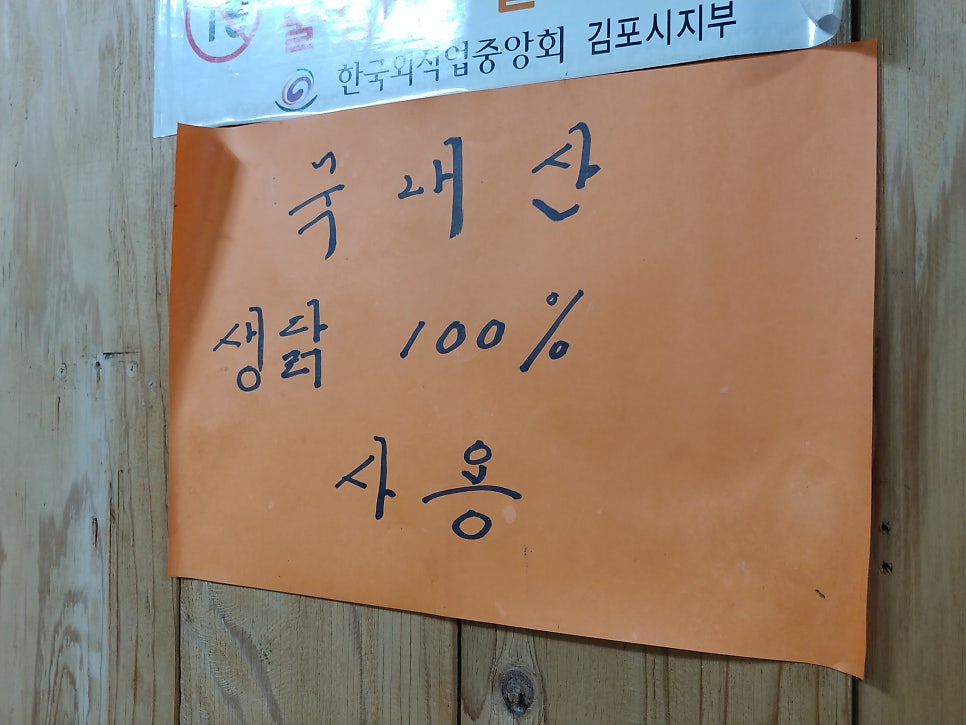 19
한국외식업중앙회 김포시지부
국내산
생닭 100%
사용